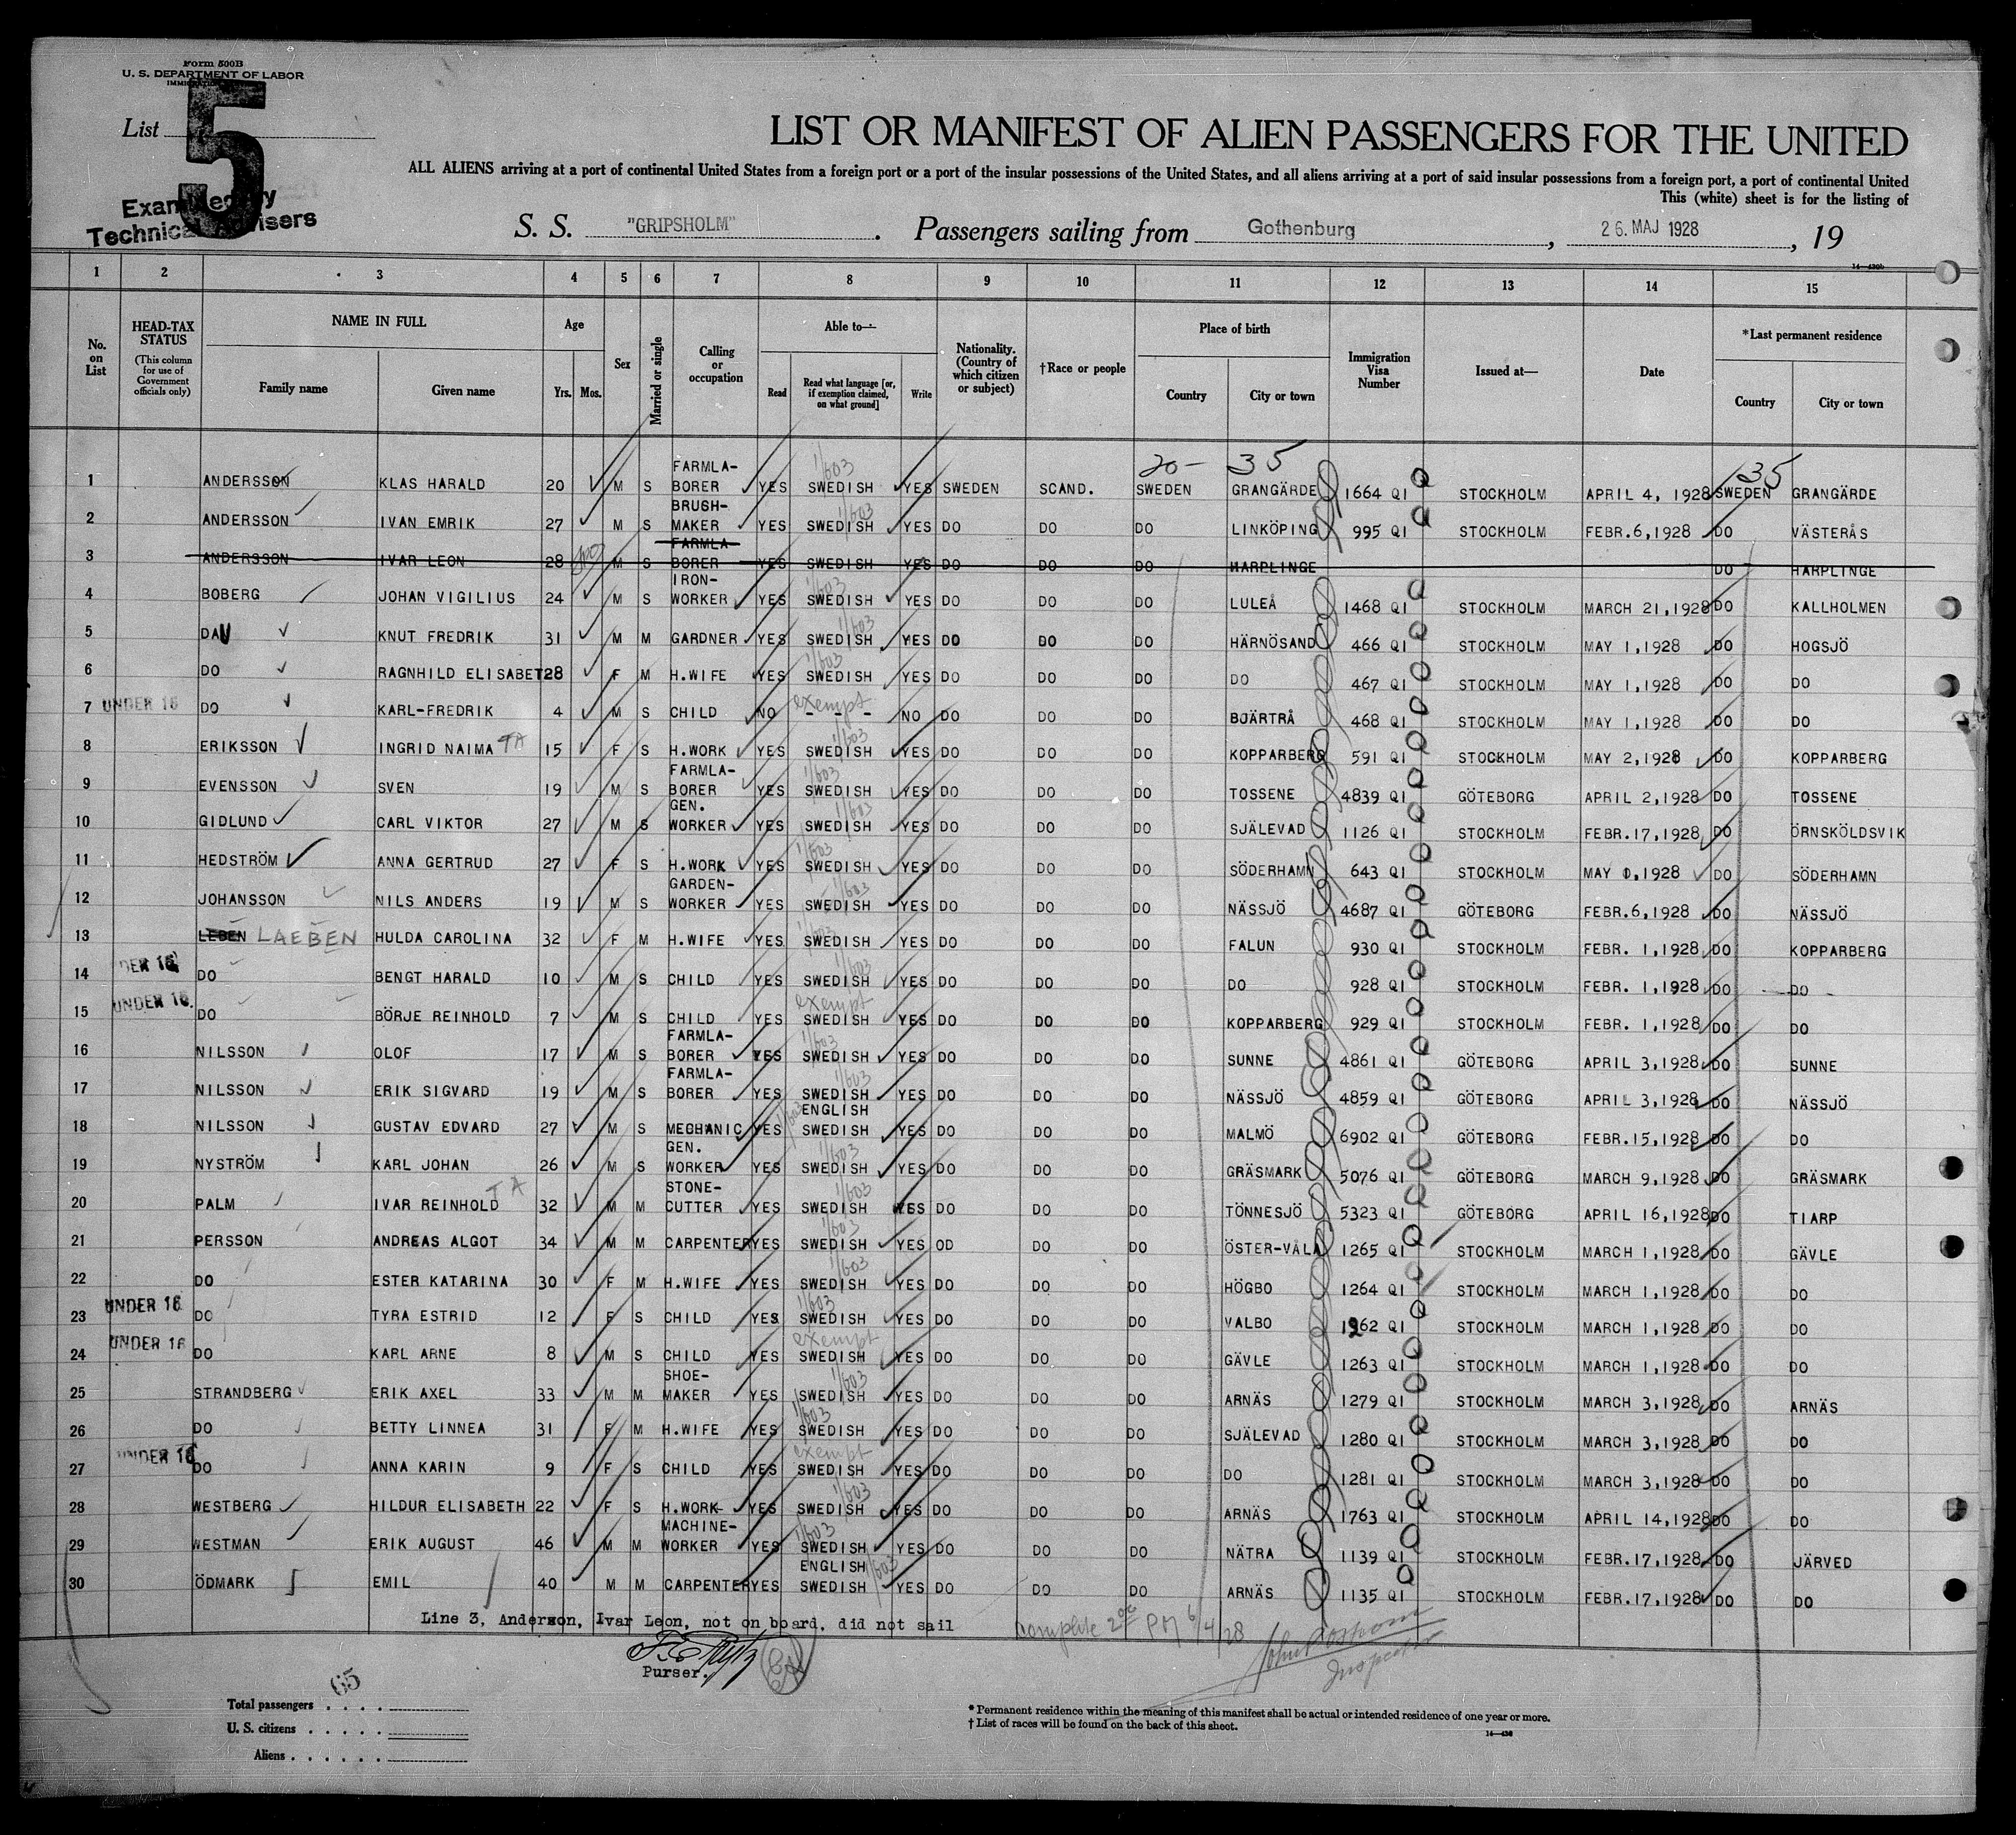 Form 500B
U. S. DEPARTMENT OF LABOR
List 5
Examined by
Technical Advisers
LIST OR MANIFEST OF ALIEN PASSENGERS FOR THE UNITED
ALL ALIENS arriving at a port of continental United States from a foreign port or a port of the insular possessions of the United States, and all aliens arriving at a port of said insular possessions from a foreign port, a port of continental United
This (white) sheet is for the listing of
S. S. "GRIPSHOLM". Passengers sailing from Gothenburg, 26. MAJ 1928, 19
14—430b
1 2 3 4 5 6 7 8 9 10 11 12 13 14 15
No. on List HEAD-TAX STATUS (This column for use of Government officials only) NAME IN FULL Family name Given name Age Yrs. Mos. Sex Married or single Calling or occupation Able to— Read Read what language [or, if exemption claimed, on what ground] Write Nationality. (Country of which citizen or subject) †Race or people Place of birth Country City or town Immigration Visa Number Issued at— Date *Last permanent residence Country City or town
20- 35 135
1 ANDERSSON KLAS HARALD 20 M S FARMLA-BORER YES SWEDISH 1/603 YES SWEDEN SCAND. SWEDEN GRANGÄRDE 1664 QI STOCKHOLM APRIL 4, 1928 SWEDEN GRANGÄRDE
2 ANDERSSON IVAN EMRIK 27 M S BRUSH-MAKER YES SWEDISH 1/603 YES DO DO DO LINKÖPING 995 QI STOCKHOLM FEBR.6,1928 DO VÄSTERÅS
3 ANDERSSON IVAR LEON 28 M S FARMLA-BORER YES SWEDISH YES DO DO DO HARPLINGE DO HARPLINGE
4 BOBERG JOHAN VIGILIUS 24 M S IRON-WORKER YES SWEDISH 1/603 YES DO DO DO LULEÅ 1468 QI STOCKHOLM MARCH 21,1928 DO KALLHOLMEN
5 DAU KNUT FREDRIK 31 M M GARDNER YES SWEDISH 1/603 YES DO DO DO HÄRNÖSAND 466 QI STOCKHOLM MAY 1,1928 DO HOGSJÖ
6 DO RAGNHILD ELISABET 28 F M H.WIFE YES SWEDISH 1/603 YES DO DO DO DO 467 QI STOCKHOLM MAY 1,1928 DO DO
7 UNDER 16 DO KARL-FREDRIK 4 M S CHILD NO exempt - - - NO DO DO DO BJÄRTRÅ 468 QI STOCKHOLM MAY 1,1928 DO DO
8 ERIKSSON INGRID NAIMA TA 15 F S H.WORK YES SWEDISH 1/603 YES DO DO DO KOPPARBERG 591 QI STOCKHOLM MAY 2,1928 DO KOPPARBERG
9 EVENSSON SVEN 19 M S FARMLA-BORER YES SWEDISH 1/603 YES DO DO DO TOSSENE 4839 QI GÖTEBORG APRIL 2,1928 DO TOSSENE
10 GIDLUND CARL VIKTOR 27 M S GEN. WORKER YES SWEDISH 1/603 YES DO DO DO SJÄLEVAD 1126 QI STOCKHOLM FEBR.17,1928 DO ÖRNSKÖLDSVIK
11 HEDSTRÖM ANNA GERTRUD 27 F S H.WORK YES SWEDISH 1/603 YES DO DO DO SÖDERHAMN 643 QI STOCKHOLM MAY ,1928 DO SÖDERHAMN
12 JOHANSSON NILS ANDERS 19 M S GARDEN-WORKER YES SWEDISH 1/603 YES DO DO DO NÄSSJÖ 4687 QI GÖTEBORG FEBR.6,1928 DO NÄSSJÖ
13 LEBEN LAEBEN HULDA CAROLINA 32 F M H.WIFE YES SWEDISH 1/603 YES DO DO DO FALUN 930 QI STOCKHOLM FEBR. 1,1928 DO KOPPARBERG
14 DER 16 DO BENGT HARALD 10 M S CHILD YES SWEDISH 1/603 YES DO DO DO DO 928 QI STOCKHOLM FEBR. 1,1928 DO DO
15 UNDER 16. DO BÖRJE REINHOLD 7 M S CHILD YES exempt SWEDISH YES DO DO DO KOPPARBERG 929 QI STOCKHOLM FEBR. 1,1928 DO DO
16 NILSSON OLOF 17 M S FARMLA-BORER YES SWEDISH 1/603 YES DO DO DO SUNNE 4861 QI GÖTEBORG APRIL 3,1928 DO SUNNE
17 NILSSON ERIK SIGVARD 19 M S FARMLA-BORER YES SWEDISH 1/603 YES DO DO DO NÄSSJÖ 4859 QI GÖTEBORG APRIL 3,1928 DO NÄSSJÖ
18 NILSSON GUSTAV EDVARD 27 M S MECHANIC YES 1/603 ENGLISH SWEDISH YES DO DO DO MALMÖ 6902 QI GÖTEBORG FEBR.15,1928 DO DO
19 NYSTRÖM KARL JOHAN 26 M S GEN. WORKER YES SWEDISH 1/603 YES DO DO DO GRÄSMARK 5076 QI GÖTEBORG MARCH 9,1928 DO GRÄSMARK
20 PALM IVAR REINHOLD TA 32 M M STONE-CUTTER YES SWEDISH 1/603 YES DO DO DO TÖNNESJÖ 5323 QI GÖTEBORG APRIL 16,1928 DO TIARP
21 PERSSON ANDREAS ALGOT 34 M M CARPENTER YES SWEDISH 1/603 YES OD DO DO ÖSTER-VÅLA 1265 QI STOCKHOLM MARCH 1,1928 DO GÄVLE
22 DO ESTER KATARINA 30 F M H.WIFE YES SWEDISH 1/603 YES DO DO DO HÖGBO 1264 QI STOCKHOLM MARCH 1,1928 DO DO
23 UNDER 16 DO TYRA ESTRID 12 F S CHILD YES SWEDISH 1/603 YES DO DO DO VALBO 1262 QI STOCKHOLM MARCH 1,1928 DO DO
24 UNDER 16 DO KARL ARNE 8 M S CHILD YES exempt SWEDISH YES DO DO DO GÄVLE 1263 QI STOCKHOLM MARCH 1,1928 DO DO
25 STRANDBERG ERIK AXEL 33 M M SHOE-MAKER YES SWEDISH 1/603 YES DO DO DO ARNÄS 1279 QI STOCKHOLM MARCH 3,1928 DO ARNÄS
26 DO BETTY LINNEA 31 F M H.WIFE YES SWEDISH 1/603 YES DO DO DO SJÄLEVAD 1280 QI STOCKHOLM MARCH 3,1928 DO DO
27 UNDER 16 DO ANNA KARIN 9 F S CHILD YES exempt SWEDISH YES DO DO DO DO 1281 QI STOCKHOLM MARCH 3,1928 DO DO
28 WESTBERG HILDUR ELISABETH 22 F S H.WORK YES SWEDISH 1/603 YES DO DO DO ARNÄS 1763 QI STOCKHOLM APRIL 14,1928 DO DO
29 WESTMAN ERIK AUGUST 46 M M MACHINE-WORKER YES SWEDISH 1/603 YES DO DO DO NÄTRA 1139 QI STOCKHOLM FEBR.17,1928 DO JÄRVED
30 ÖDMARK EMIL 40 M M CARPENTER YES ENGLISH SWEDISH 1/603 YES DO DO DO ARNÄS 1135 QI STOCKHOLM FEBR.17,1928 DO DO
Line 3, Anderson, Ivar Leon, not on board, did not sail
complete 2 PM 6/4/28
Purser.
Inspector
65
Total passengers
U. S. citizens
Aliens
* Permanent residence within the meaning of this manifest shall be actual or intended residence of one year or more.
† List of races will be found on the back of this sheet.